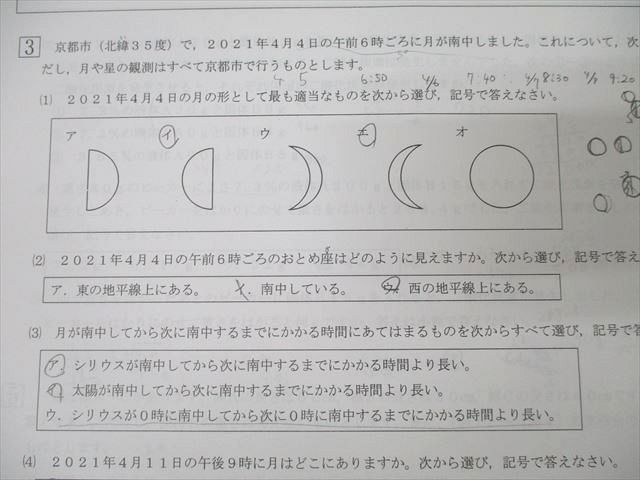 3 京都市(北緯35度)で,2021年4月4日の午前6時ごろに月が南中しました。これについて,次
だし,月や星の観測はすべて京都市で行うものとします。
4 5 6:50 4/6 7:40 4/7 8:30 4/8 9:20
(1) 2021年4月4日の月の形として最も適当なものを次から選び,記号で答えなさい。
ア イ ウ エ オ
(2) 2021年4月4日の午前6時ごろのおとめ座はどのように見えますか。次から選び,記号で答え
ア.東の地平線上にある。 イ.南中している。 ウ.西の地平線上にある。
(3) 月が南中してから次に南中するまでにかかる時間にあてはまるものを次からすべて選び,記号で答
ア.シリウスが南中してから次に南中するまでにかかる時間より長い。
イ.太陽が南中してから次に南中するまでにかかる時間より長い。
ウ.シリウスが0時に南中してから次に0時に南中するまでにかかる時間より長い。
(4) 2021年4月11日の午後9時に月はどこにありますか。次から選び,記号で答えなさい。